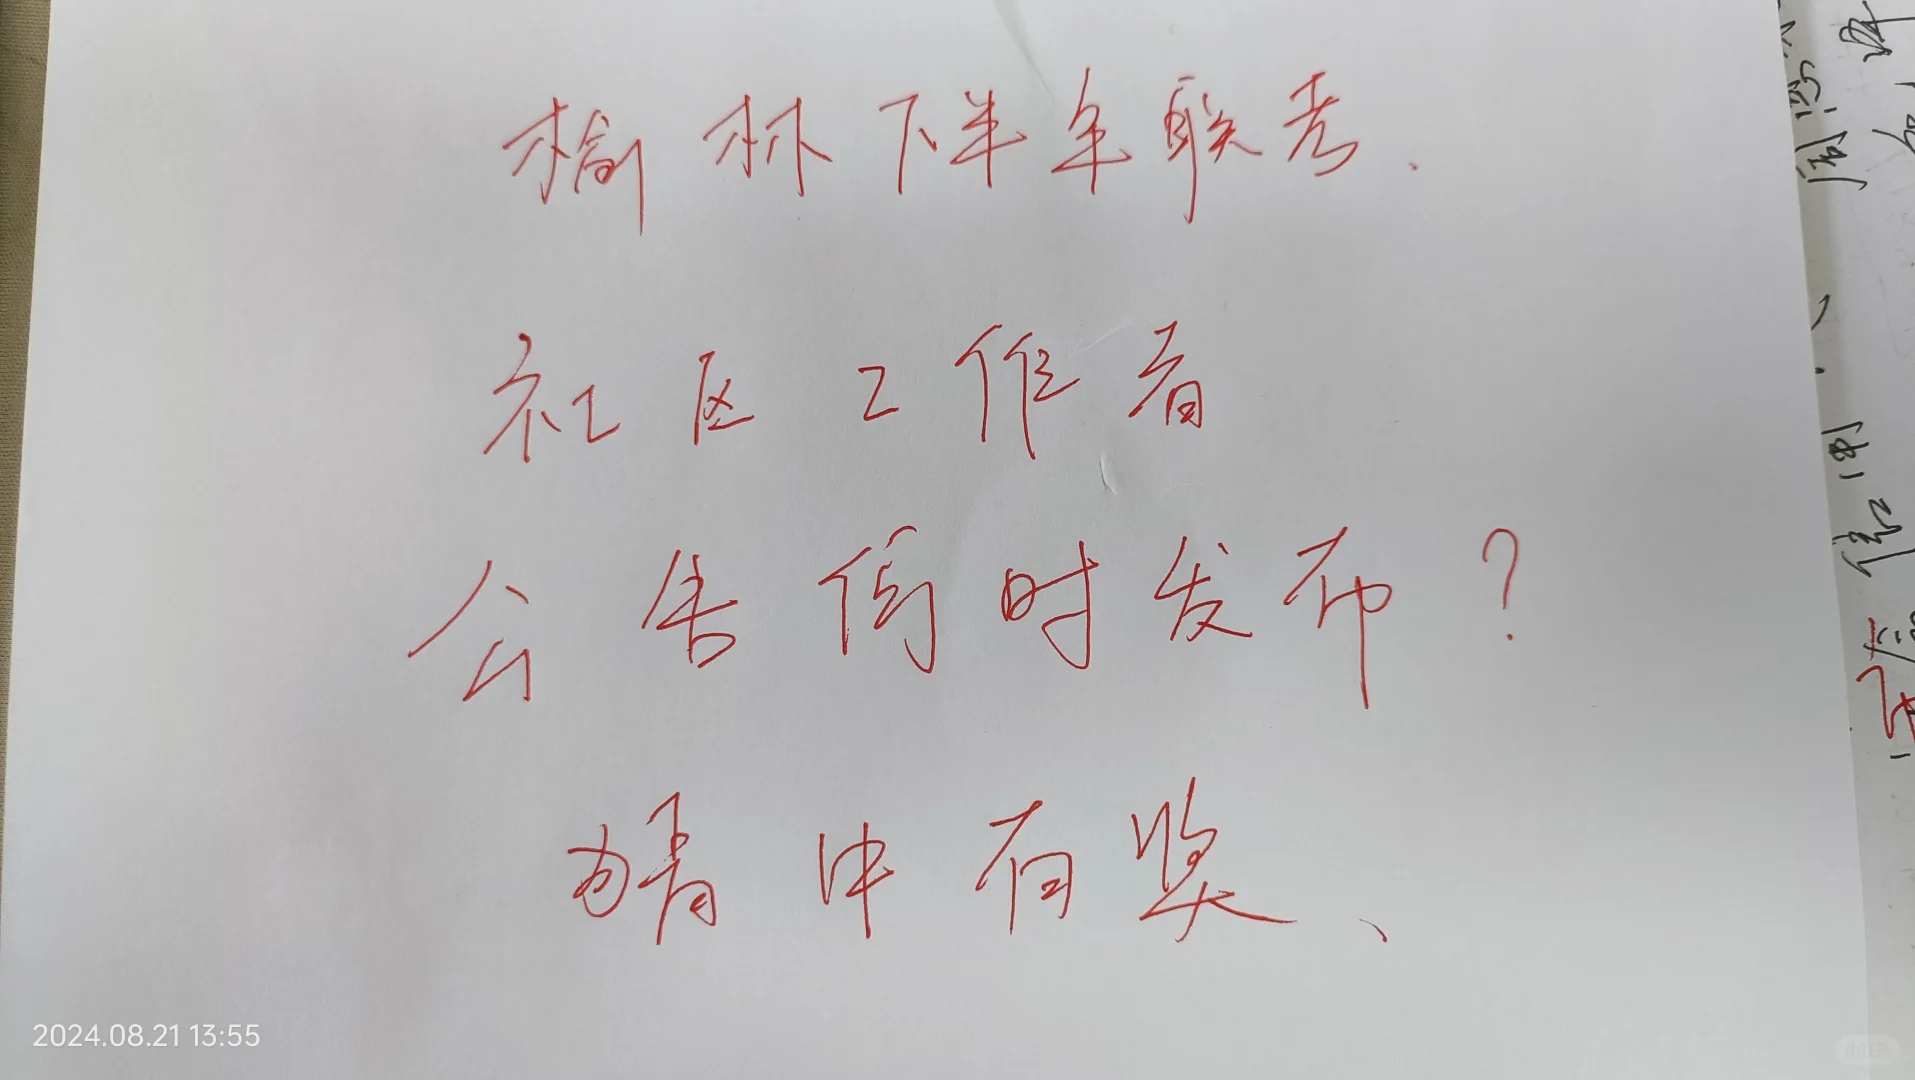 榆林下半年联考.
社区工作者
公告何时发布?
猜中有奖、
2024.08.21 13:55